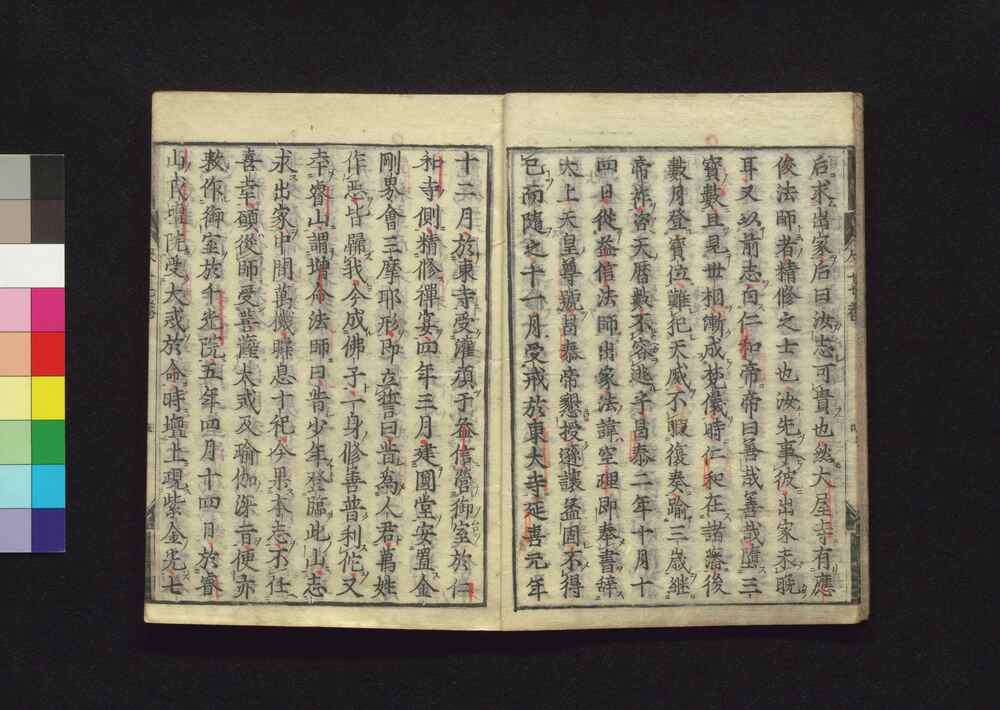 后求出家后曰汝志可貴也然大屋寺有應
俊法師者精修之士也汝先事彼出家未晚
耳又以前志白仁和帝帝曰善哉善哉隨三
寶數且見世相漸成梵儀時仁和在諸藩後
數月登寶位難犯天威不暇復奏踰三歲繼
帝祚容天曆數不容逃乎昌泰二年十月十
四日從益信法師出家法諱空理即奉書辭
太上天皇尊號昌泰帝懇授遜讓益固不得
已而隨之十一月受戒於東大寺延喜元年
十二月於東寺受灌頂于益信營御室於仁
和寺側精修禪宴四年三月建圓堂安置金
剛界會三摩耶形即立誓曰昔為人君萬姓
作惡皆歸我今成佛子一身修善普利佗又
幸睿山謂增命法師曰昔少年登臨此山志
求出家中間萬機曠息十祀今果本志不任
喜幸願從師受菩薩大戒及瑜伽深旨便亦
敕作御室於千光院五年四月十四日於睿
山戒壇院受大戒於命時壇上現紫金光七